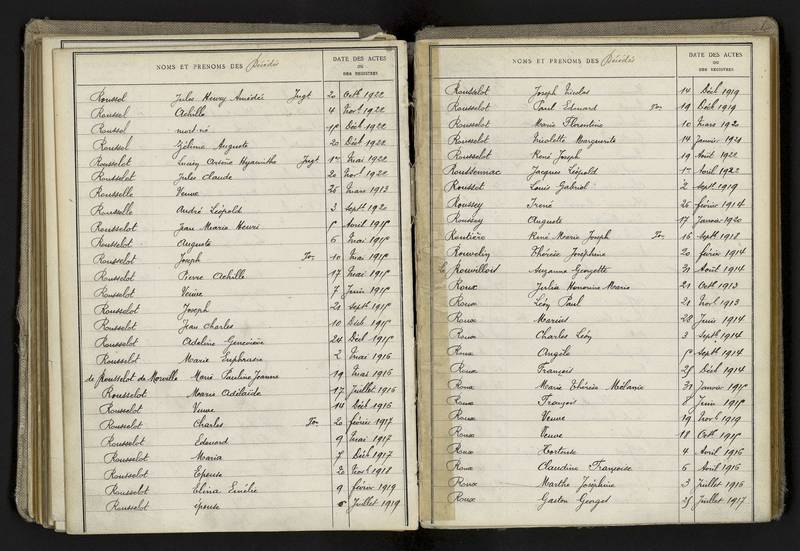 NOMS ET PRÉNOMS DES Décédés DATE DES ACTES OU DES REGISTRES
Roussel Jules Henry Amédée Jugt 20 Octb. 1922
Roussel Achille 4 Novb. 1922
Roussel mort-né Décb. 1922
Roussel Zélime Auguste 20 Décb. 1922
Rousselet Lucien Arsène Hyacinthe Jugt 1er Mai 1922
Rousselet Jules Claude 20 Novb. 1922
Rousselle Veuve 26 Mars 1913
Rousselle André Léopold 3 Septb. 1920
Rousselot Jean Marie Henri Avril 1915
Rousselot Auguste 6 Mai 1915
Rousselot Joseph Ton 10 Mai 1915
Rousselot Pierre Achille 17 Mai 1915
Rousselot Veuve 7 Juin 1915
Rousselot Joseph 20 Septb. 1915
Rousselot Jean Charles 10 Décb. 1915
Rousselot Adeline Geneviève 24 Décb. 1915
Rousselot Marie Euphrasie 2 Mai 1916
de Rousselot de Morville Marie Pauline Jeanne 19 Mai 1916
Rousselot Marie Adélaïde 17 Juillet 1916
Rousselot Veuve 14 Décb. 1916
Rousselot Charles Ton 20 février 1917
Rousselot Edouard 9 Mai 1917
Rousselot Maria 7 Décb. 1917
Rousselot Epouse 20 Novb. 1918
Rousselot Elina Emélie 9 février 1919
Rousselot épouse Juillet 1919
NOMS ET PRÉNOMS DES Décédés DATE DES ACTES OU DES REGISTRES
Rousselot Joseph Nicolas 14 Décb. 1919
Rousselot Paul Edouard Ton 19 Décb. 1919
Rousselot Marie Florentine 10 Mars 1920
Rousselot Nicolette Marguerite 14 Janvier 1921
Rousselot René Joseph 19 Août 1922
Roussennac Jacques Léopold 1er Avril 1922
Rousset Louis Gabriel 2 Septb. 1919
Roussey Irené 26 février 1914
Roussey Auguste 17 Janvier 1920
Routière René Marie Joseph Ton 16 Septb. 1918
Rouvelin Thérèse Joséphine 20 février 1914
Le Rouvillois Suzanne Georgette 31 Août 1914
Roux Julia Honorine Marie 21 Octb. 1913
Roux Léon Paul 21 Novb. 1913
Roux Marius 28 Juin 1914
Roux Charles Léon 3 Septb. 1914
Roux Angèle Septb. 1914
Roux François 25 Décb. 1914
Roux Marie Thérèse Mélanie 31 Janvier 1915
Roux François 8 Juin 1915
Roux Veuve 19 Novb. 1919
Roux Veuve 18 Octb. 1915
Roux Hortense 4 Avril 1916
Roux Claudine Françoise 6 Avril 1916
Roux Marthe Joséphine 3 Juillet 1916
Roux Gaston Georges 25 Juillet 1917